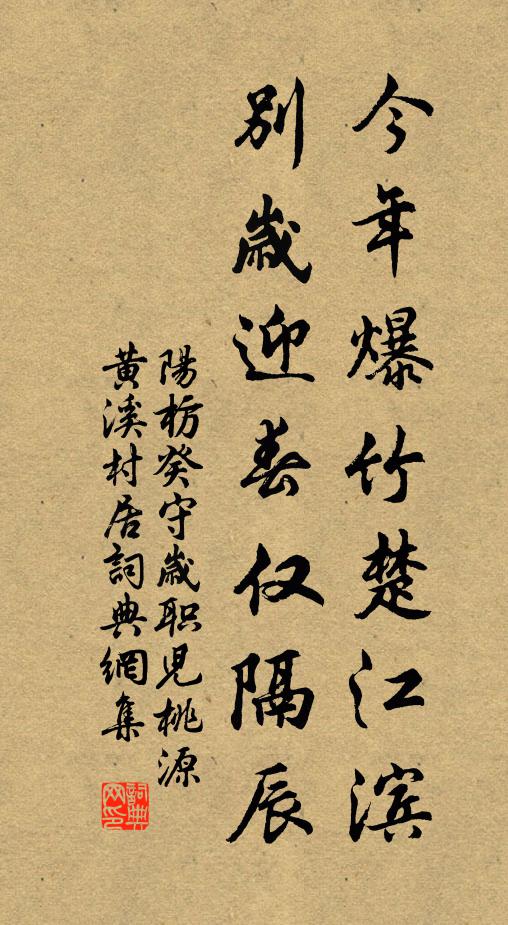 今年爆竹楚江滨
別歲迎春仅隔辰
陽枋癸守歲职児桃源
黄溪村居詞典網集
詞典网印